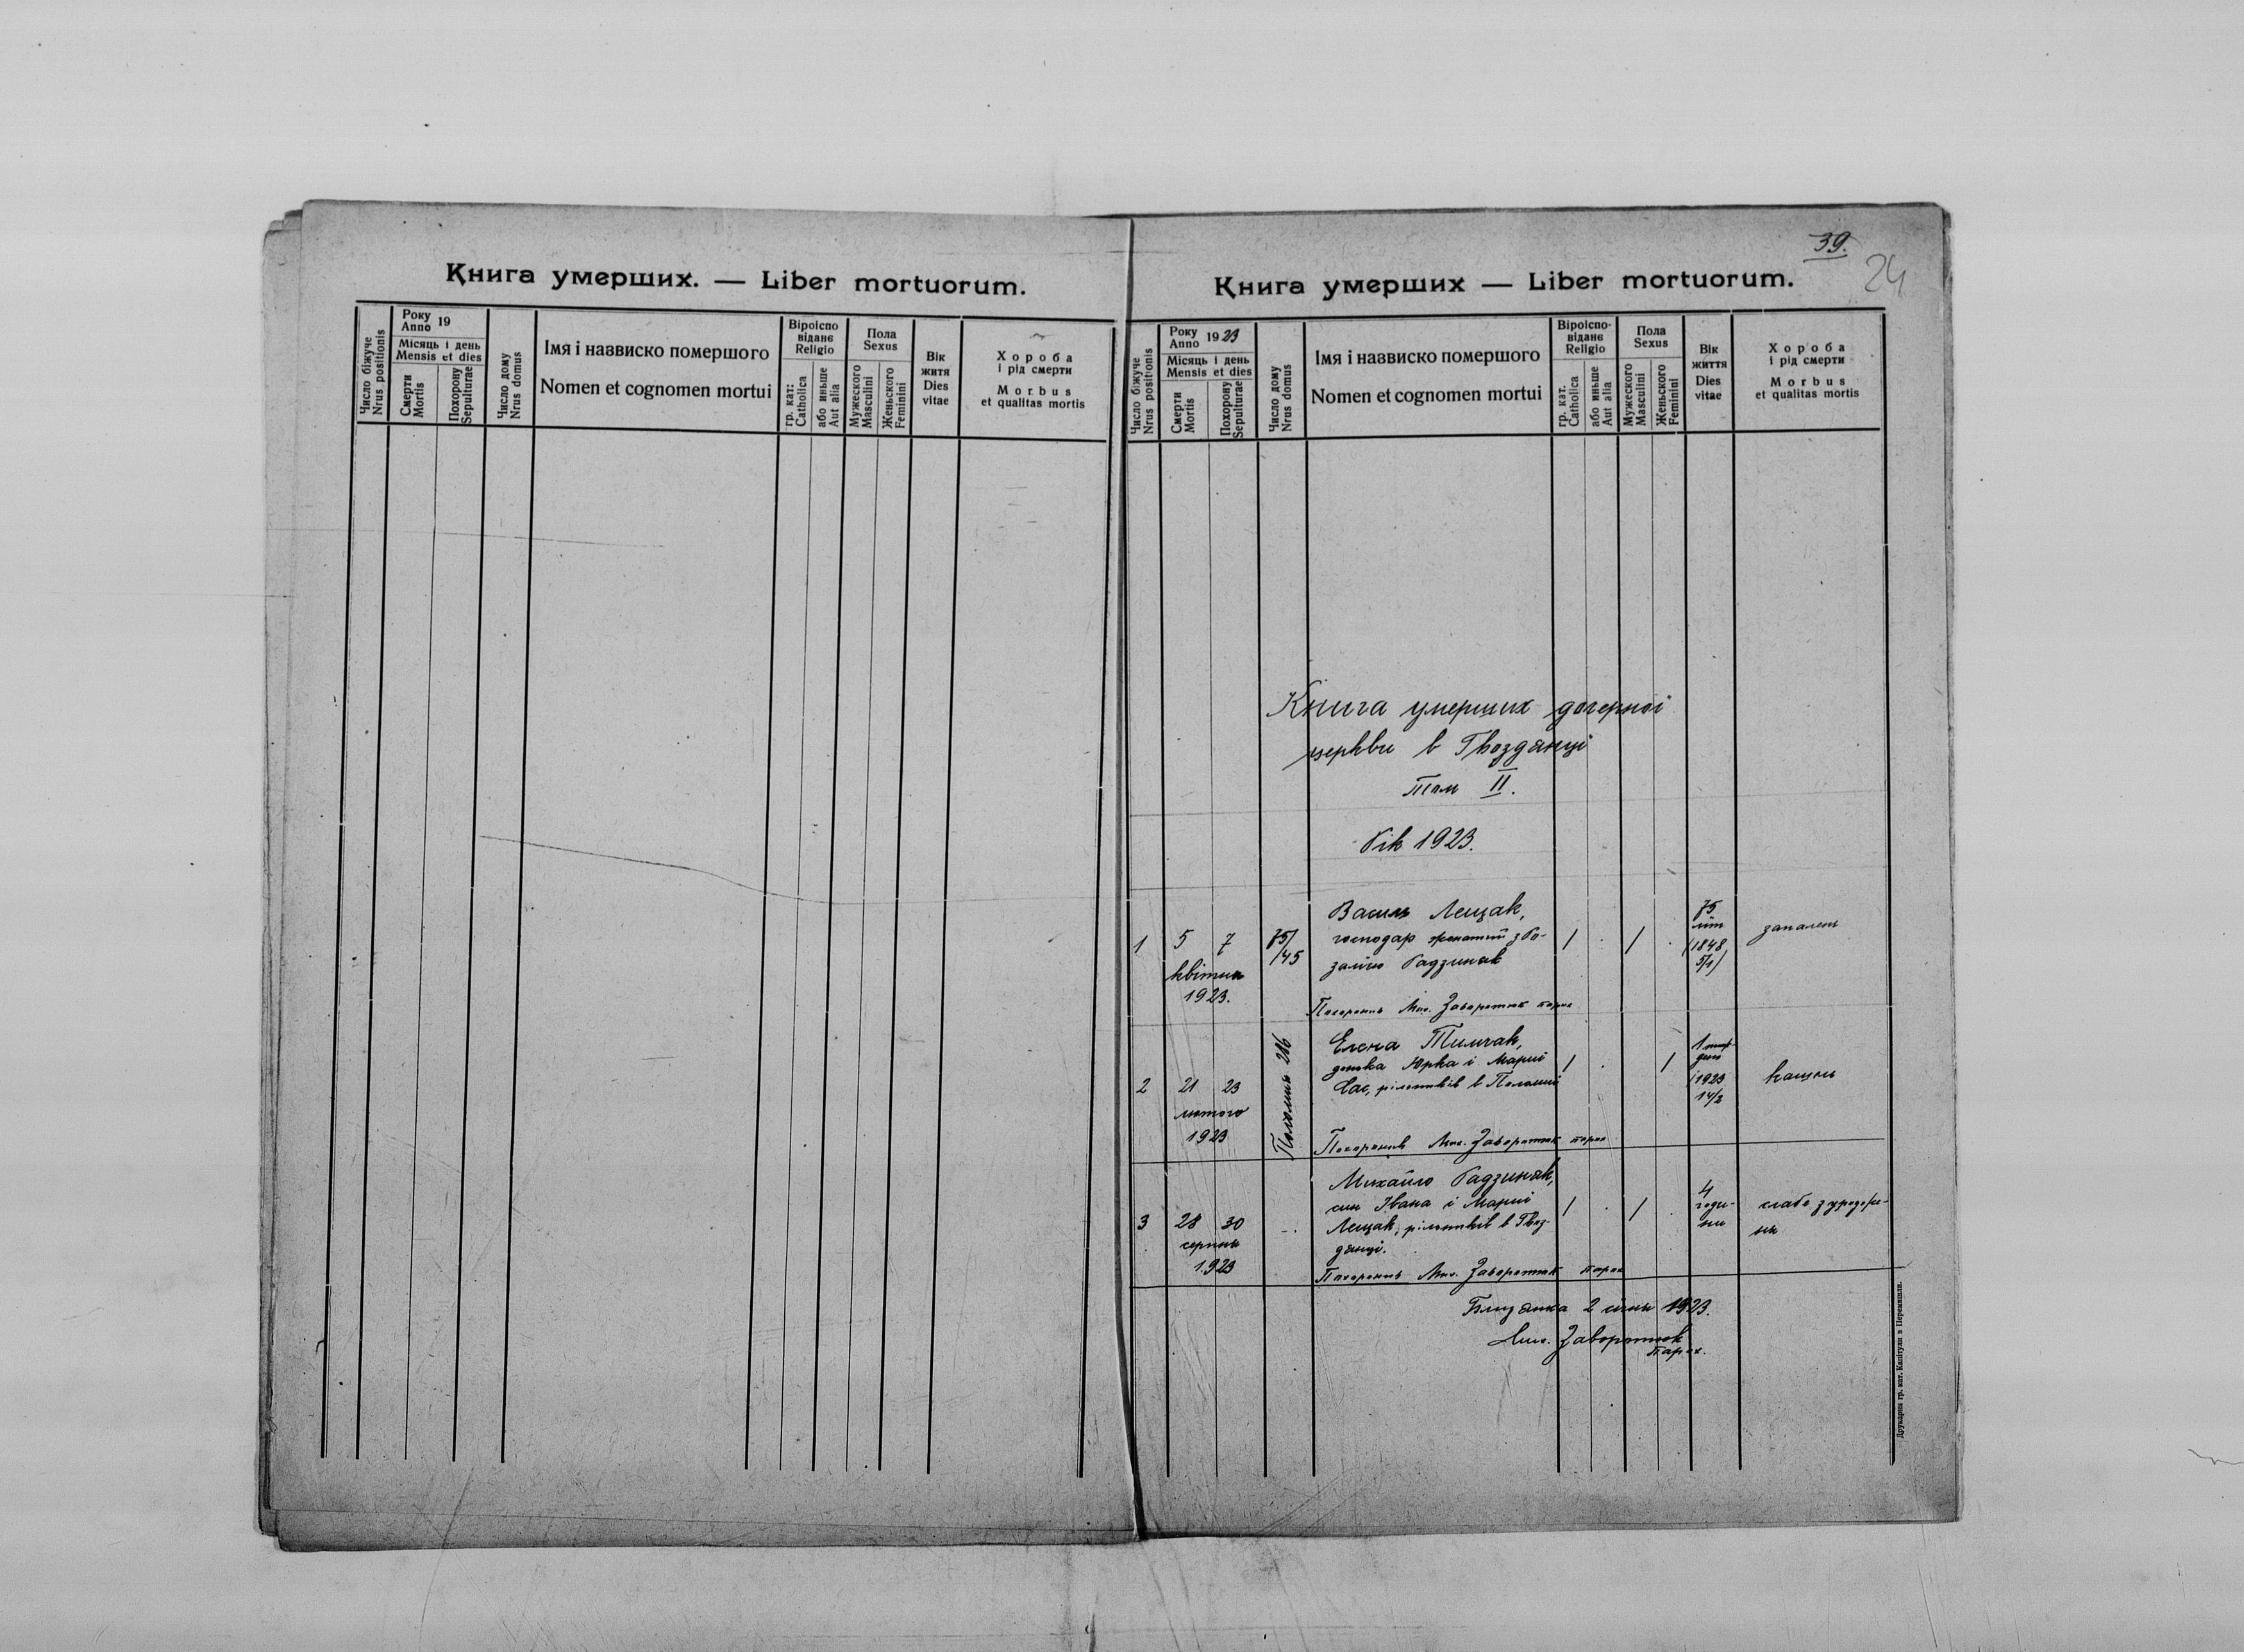 Книга умерших. — Liber mortuorum.
Число біжуче
Nrus positionis
Року
Anno 19
Місяць і день
Mensis et dies
Смерти
Mortis
Похорону
Sepulturae
Число дому
Nrus domus
Імя і назвиско помершого
Nomen et cognomen mortui
Віроіспо
відане
Religio
гр. кат:
Catholica
або иньше
Aut alia
Пола
Sexus
Мужеского
Masculini
Женьского
Feminini
Вік
житя
Dies
vitae
Хороба
і рід смерти
Morbus
et qualitas mortis
39.
24
Книга умерших — Liber mortuorum.
Число біжуче
Nrus positionis
Року
Anno 1923
Місяць і день
Mensis et dies
Смерти
Mortis
Похорону
Sepulturae
Число дому
Nrus domus
Імя і назвиско помершого
Nomen et cognomen mortui
Віроіспо-
відане
Religio
гр. кат.
Catholica
або иньше
Aut alia
Пола
Sexus
Мужеского
Masculini
Женьского
Feminini
Вік
життя
Dies
vitae
Хороба
і рід смерти
Morbus
et qualitas mortis
Книга умерших дочерної
церкви в Гвоздянці
Том II.
Рік 1923.
1
5 7
квітня
1923.
75/
/45
Василь Лещак,
господар жонатий з Ро-
залією Радзиняк
Похоронив Мих. Заворотюк парох
1 . 1 .
75
літ
(1848
5/1)
запалень
2
21 23
лютого
1923
Поломия 216
Елена Тимчак,
донька Юрка і Марії
Сас, рільників в Поломиї
Похоронив Мих. Заворотюк парох
1 . 1
1 тиж-
день
(1923
14/2
кашель
3
28 30
серпня
1923
-.
Михайло Радзиняк,
син Івана і Марії
Лещак, рільників в Гвоз-
дянці.
Похоронив Мих. Заворотюк парох
1 . 1 .
4
годи-
ни
слабе з уродже-
ня
Близянка 2 січня 1923.
Мих. Заворотюк
парох.
Друкарня гр. кат. Капітули в Перемишли.